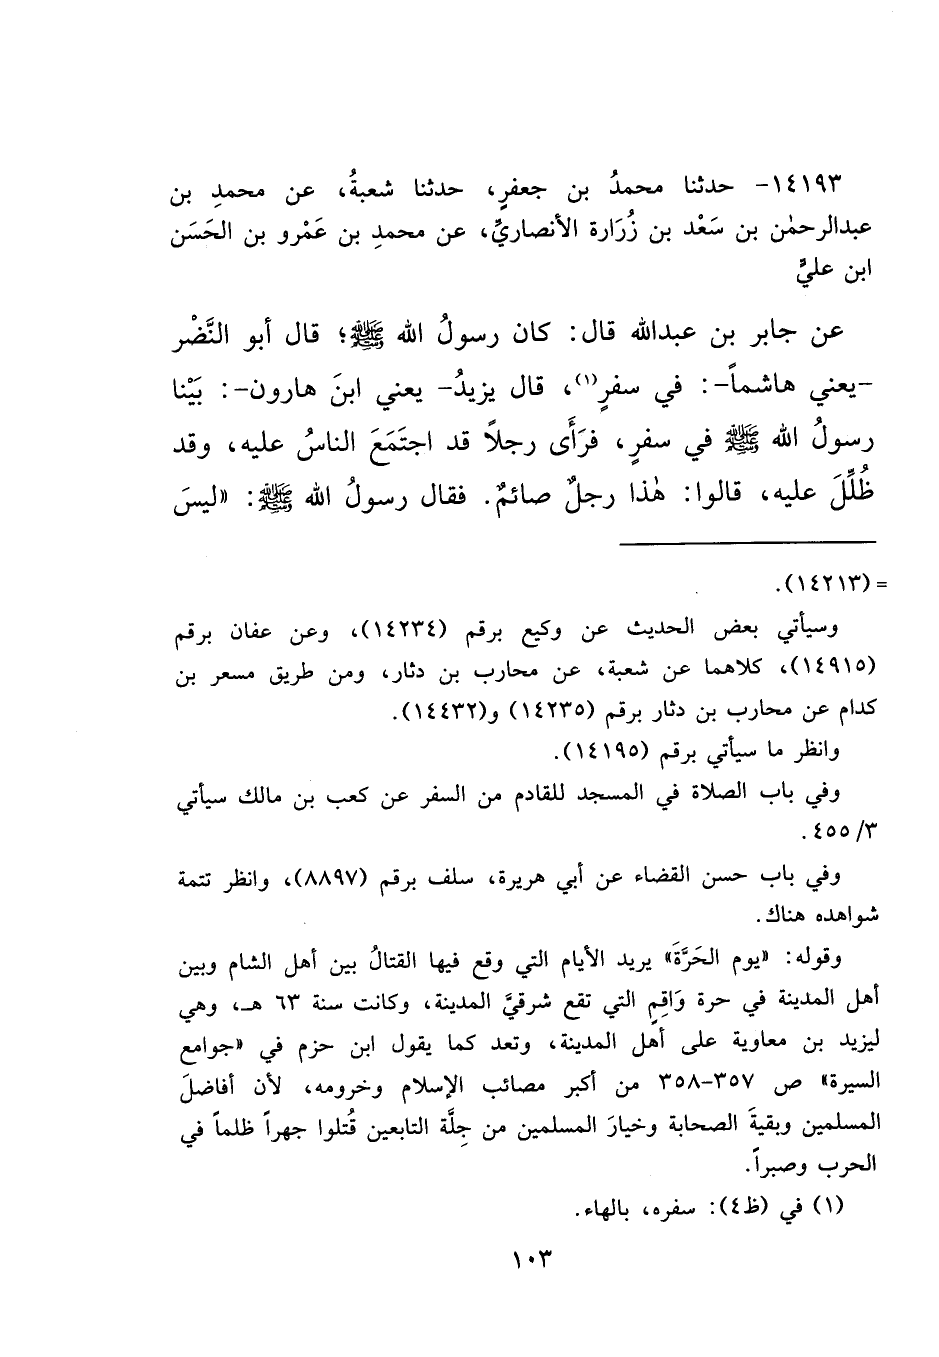 ١٤١٩٣- حدثنا محمدُ بن جعفرٍ، حدثنا شعبةُ، عن محمدِ بن
عبدالرحمٰن بن سَعْد بن زُرَارة الأنصاريِّ، عن محمدِ بن عَمْرو بن الحَسَن
ابن عليٍّ
عن جابر بن عبدالله قال: كان رسولُ الله ﷺ؛ قال أبو النَّضْر
-يعني هاشماً-: في سفرٍ(١)، قال يزيدُ- يعني ابنَ هارون-: بَيْنا
رسولُ الله ﷺ في سفرٍ، فرَأَى رجلاً قد اجتَمَعَ الناسُ عليه، وقد
ظُلِّلَ عليه، قالوا: هٰذا رجلٌ صائمٌ. فقال رسولُ الله ﷺ: «ليسَ
= (١٤٢١٣).
وسيأتي بعض الحديث عن وكيع برقم (١٤٢٣٤)، وعن عفان برقم
(١٤٩١٥)، كلاهما عن شعبة، عن محارب بن دثار، ومن طريق مسعر بن
كدام عن محارب بن دثار برقم (١٤٢٣٥) و(١٤٤٣٢).
وانظر ما سيأتي برقم (١٤١٩٥).
وفي باب الصلاة في المسجد للقادم من السفر عن كعب بن مالك سيأتي
٣/ ٤٥٥.
وفي باب حسن القضاء عن أبي هريرة، سلف برقم (٨٨٩٧)، وانظر تتمة
شواهده هناك.
وقوله: «يوم الحَرَّةَ» يريد الأيام التي وقع فيها القتالُ بين أهل الشام وبين
أهل المدينة في حرة وَاقِمٍ التي تقع شرقيَّ المدينة، وكانت سنة ٦٣ هـ، وهي
ليزيد بن معاوية على أهل المدينة، وتعد كما يقول ابن حزم في «جوامع
السيرة» ص ٣٥٧-٣٥٨ من أكبر مصائب الإسلام وخرومه، لأن أفاضلَ
المسلمين وبقيةَ الصحابة وخيارَ المسلمين من جِلَّة التابعين قُتلوا جهراً ظلماً في
الحرب وصبراً.
(١) في (ظ٤): سفره، بالهاء.
١٠٣